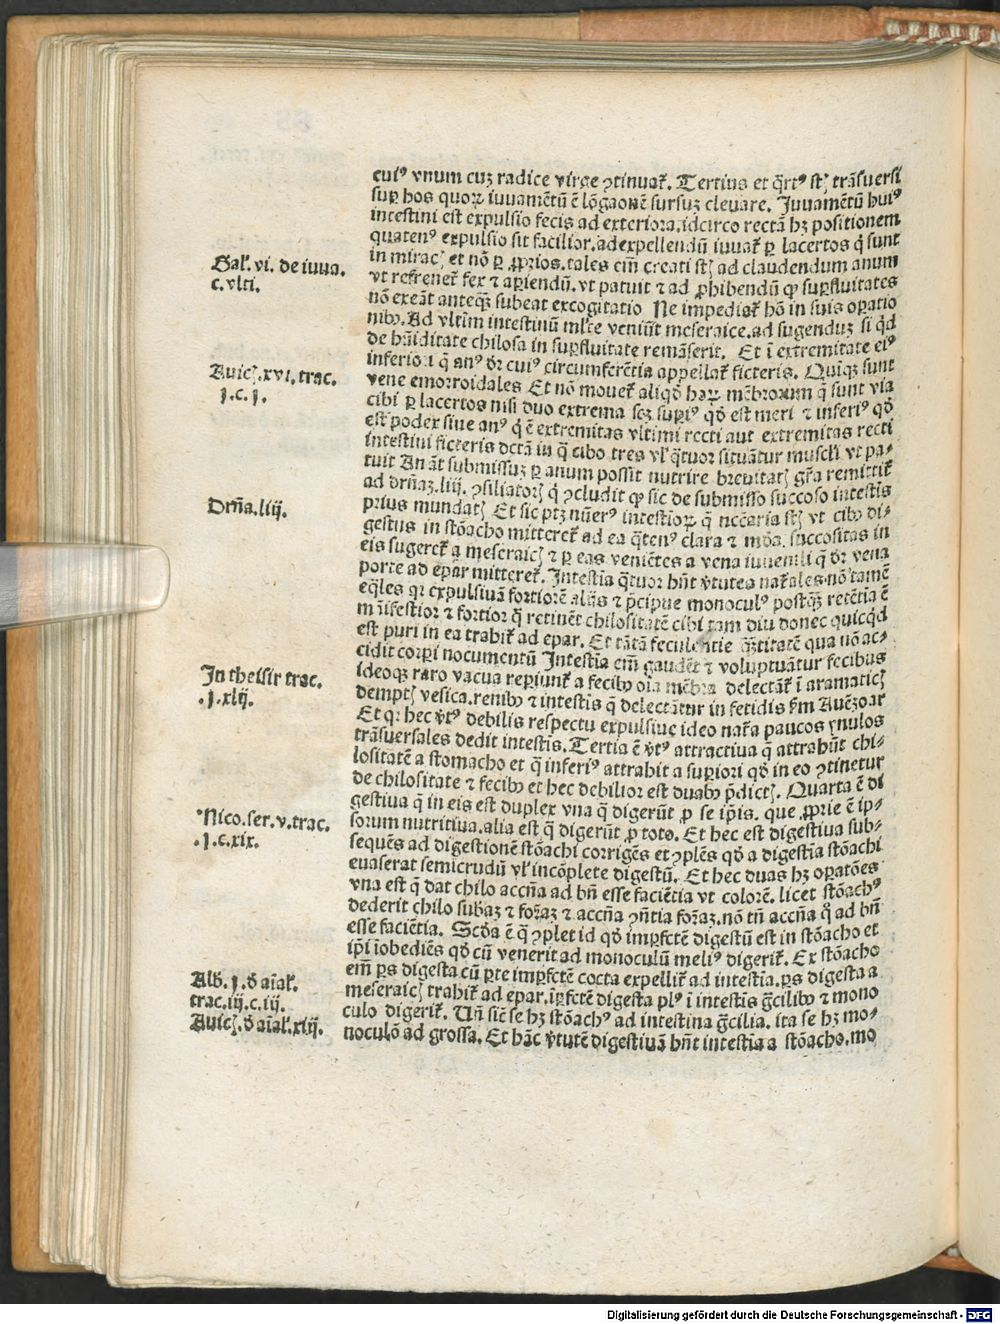 cuiꝰ vnum cuꝫ radice virge ꝯtinuat᷑. Tertius et q̄rtꝰ sūt trāsuersi
suꝑ hos quoꝝ iuuamētū ē lōgaonē sursuꝫ eleuare. Juuamētū huiꝰ
intestini est expulsio fecis ad exteriora. idcirco rectā hꝫ positionem
quatenꝰ expulsio sit facilior. ad expellendū iuuat᷑ ꝑ lacertos q̇ sunt
in mirac, et nō ꝑ ꝓprios. tales em̄ creati sūt ad claudendum anum
vt refrenet᷑ fex ⁊ aꝑiendū. vt patuit ⁊ ad ꝓhibendū ꝙ suꝑfluitates
nō exeāt anteqꝫ subeat excogitatio Ne impediat᷑ hō in suis oꝑatio
nibꝰ. Ad vltim̄ intestinū ml̄te veniūt meseraice. ad sugenduꝫ si qͥd
de hūiditate chilosa in suꝑfluitate remāserit. Et ī extremitate eiꝰ
inferiori q̄ anꝰ dr̄ cuiꝰ circumferētia appellat᷑ ficteris. Quiqꝫ sunt
vene emorroidales Et nō mouet᷑ aliqͦd haꝝ mēbroꝝum q̄ sunt via
cibi ꝑ lacertos nisi duo extrema scꝫ suꝑiꝰ qͦd est meri ⁊ inferiꝰ qͦd
est podex siue anꝰ q̇ ē extremitas vltimi recti aut extremitas recti
intestini ficteris dctā in q̄ cibo tres vl̓ q̄tuor situātur musculi vt pa-
tuit An āt submissuꝫ ꝑ anum possit nutrire breuitatꝭ gr̄a remittit᷑
ad dr̄naꝫ. liij. ꝯsiliatorꝭ q̇ ꝯcludit ꝙ sic de submisso succoso intestīs
prius mundatꝭ Et sic ptꝫ nūerꝰ intestioꝝ q̄ nec̄aria sūt vt cibꝰ di-
gestus in stōacho mitteret᷑ ad ea q̄tenꝰ clara ⁊ mōa. succositas in
eis sugeret᷑ a meseraicꝭ ⁊ ꝑ eas veniētes a vena iuuenili q̄ dr̄ vena
porte ad epar mitteret᷑. Intestia q̄tuor hn̄t v̓tutes nat᷑ales nō tamē
eq̄les qꝛ expulsiuā fortiorē alijs ⁊ p̄cipue monoculꝰ postqꝫ retētia ē
māifestior ⁊ fortior q̄ retinēt chilositatē cibi tam diu donec quicqͥd
est puri in ea trahit᷑ ad epar. Et tātā feculentie q̄ntitatē qua nō ac-
cidit corꝑi nocumentū Intestia em̄ gaudēt ⁊ voluptuātur fecibus
ideoqꝫ raro vacua reꝑiunt᷑ a fecibꝰ oīa mēbra delectāt᷑ ī aramaticꝭ
demptꝭ vesica. renibꝰ ⁊ intestīs q̄ delectātur in fetidis ẜm Auēzoar
Et qꝛ hec v̓tꝰ debilis respectu expulsiue ideo nat᷑a paucos ynulos
trāsuersales dedit intestīs. Tertia ē v̓tꝰ attractiua q̄ attrahūt chi-
lositatē a stomacho et q̄ inferiꝰ attrahit a suꝑiori qͦd in eo ꝯtinetur
de chilositate ⁊ fecibꝰ et hec debilior est duabꝰ p̄dictꝭ. Quarta ē di
gestiua q̄ in eis est duplex vna q̄ digerūt ꝓ se ip̄is. que ꝓprie ē ip-
sorum nutritiua. alia est q̄ digerūt ꝓ toto. Et hec est digestiua sub-
sequēs ad digestionē stōachi corrigēs et ꝯplēs qͦd a digestīa stōachi
euaserat semicrudū vl̓ incōplete digestū. Et hec duas hꝫ oꝑatōes
vna est q̄ dat chilo accn̄a ad bn̄ esse faciētia vt colorē. licet stōachꝰ
dederit chilo sub̄aꝫ ⁊ for̄aꝫ ⁊ accn̄a ꝯn̄tia for̄aꝫ. nō tn̄ accn̄a q̄ ad bn̄
esse faciētia. Scd̄a ē q̄ ꝯplet id qͦd imꝑfctē digestū est in stōacho et
ip̄i īobediēs qͦd cū venerit ad monoculū meliꝰ digerit᷑. Ex stōacho
em̄ ꝑs digesta cū ꝑte imꝑfctē cocta expellit᷑ ad intestīa. ꝑs digesta a
meseraicꝭ trahit᷑ ad epar. īꝑfctē digesta plꝰ ī intestīs gͣcilibꝰ ⁊ mono
culo digerit᷑. Un̄ sic̄ se hꝫ stōachꝰ ad intestina gͣcilia. ita se hꝫ mo-
noculō ad grossa. Et hāc v̓tutē digestiuā hn̄t intestia a stōacho. mo
Gal᷑. vi. de iuua.
c. vlti.
Auicꝭ. xvi. trac.
j. c. j.
Drn̄a. liij.
In theisir trac.
. j. xlij.
Nico. ser. v. trac.
. j. c. xix.
Alb̄. j. đ aīal᷑.
trac. iij. c. iij.
Auicꝭ. đ aīal᷑. xiij.
Digitalisierung gefördert durch die Deutsche Forschungsgemeinschaft - DFG